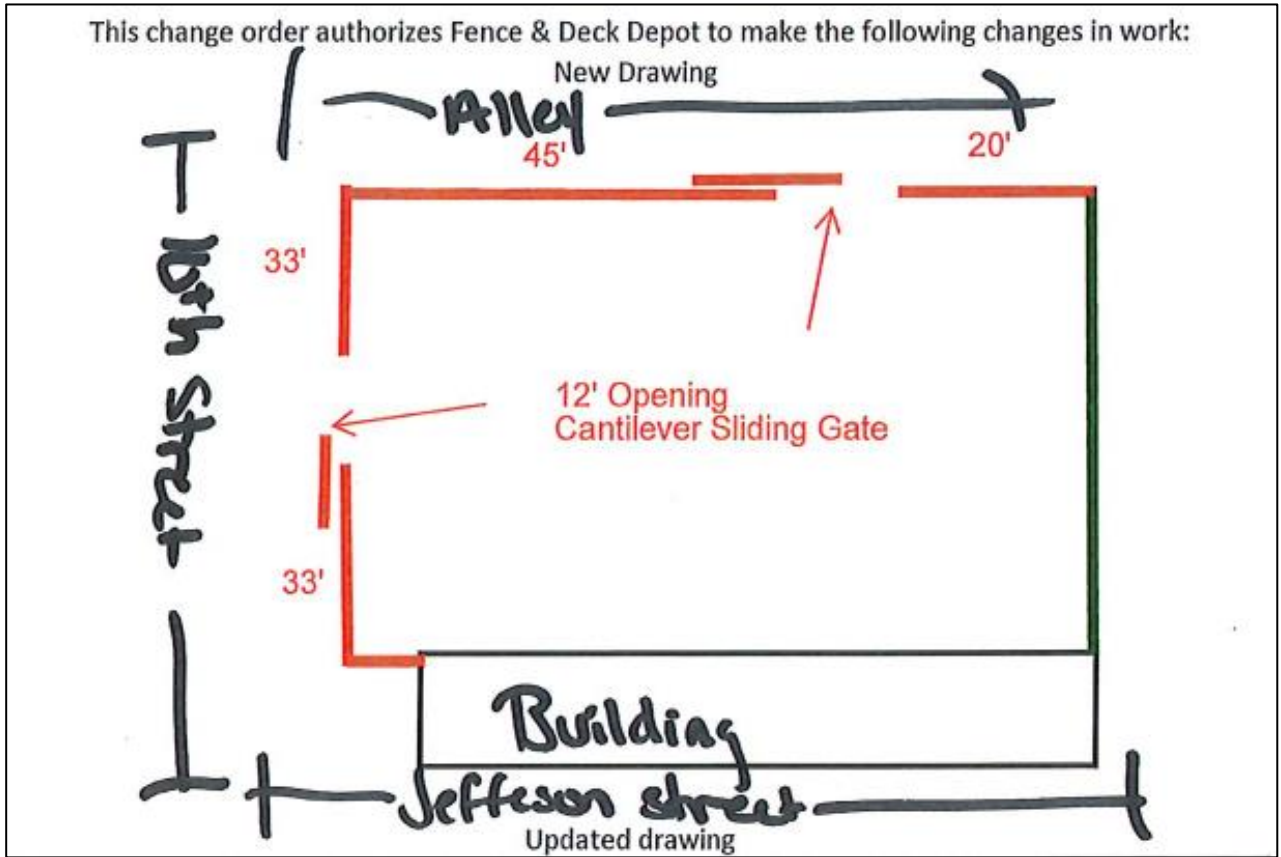 This change order authorizes Fence & Deck Depot to make the following changes in work:
New Drawing
Alley
45'
20'
33'
16th Street
12' Opening
Cantilever Sliding Gate
33'
Building
Jeffeson street
Updated drawing